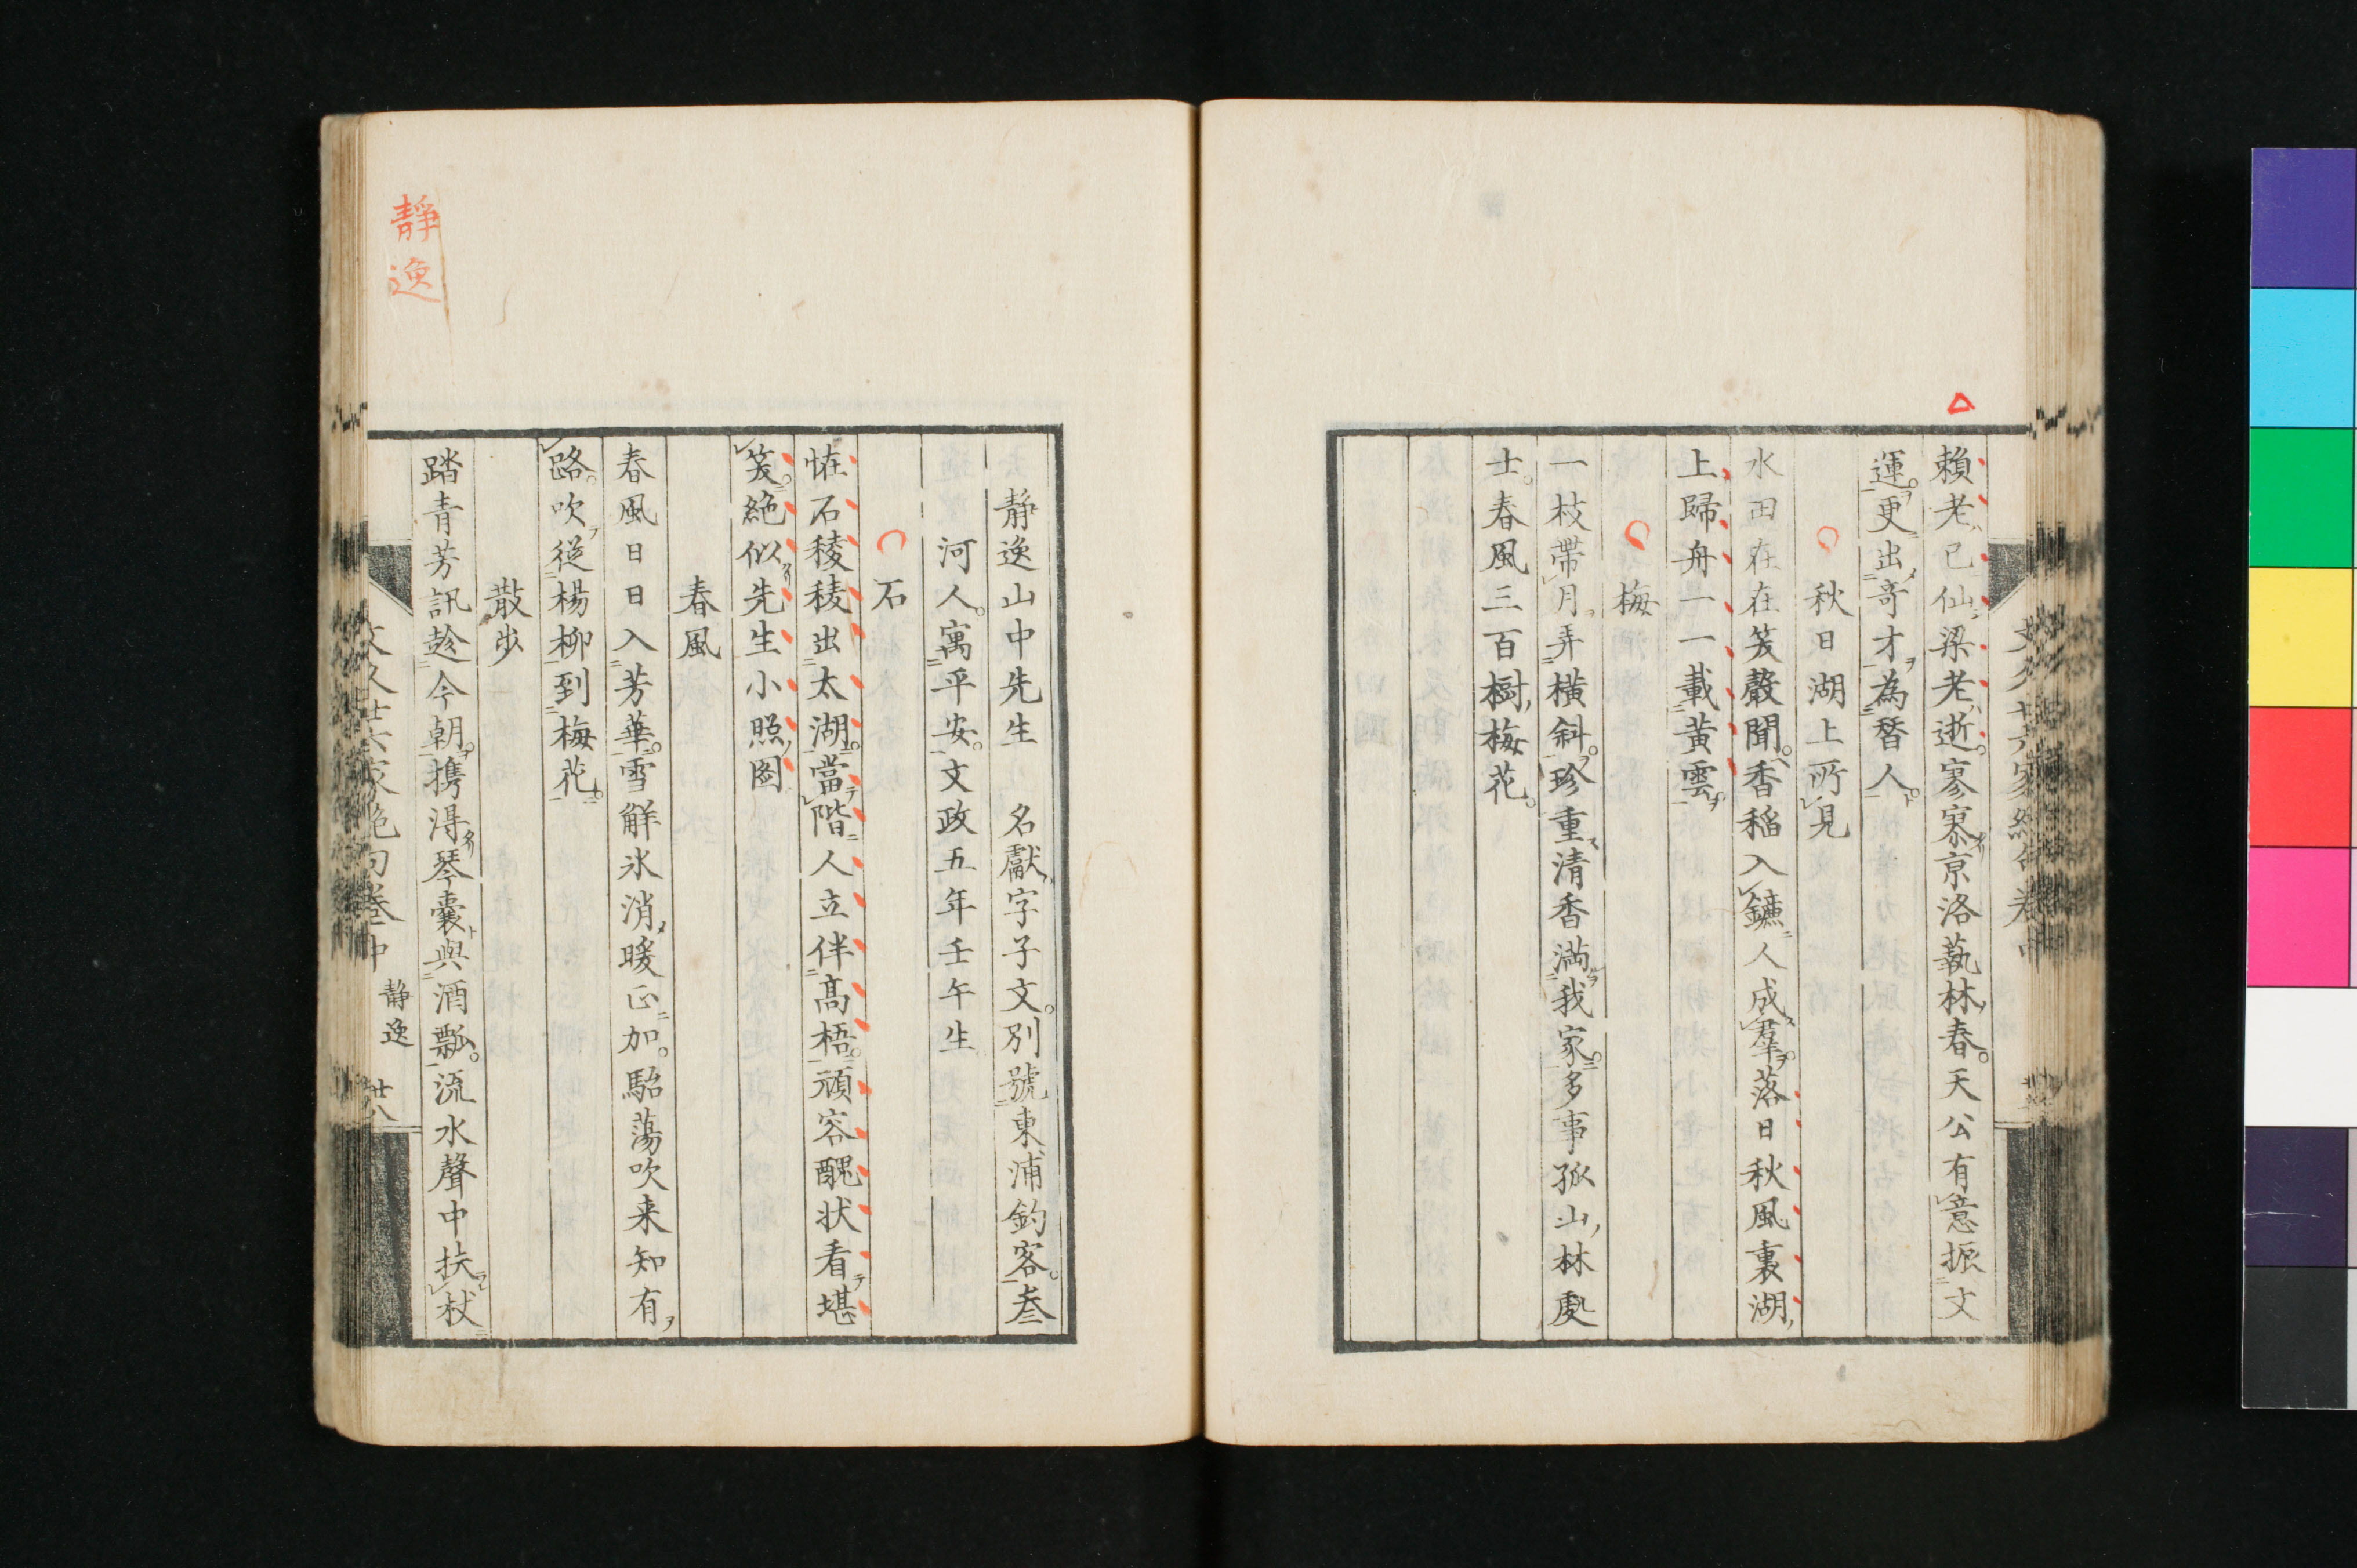 賴老已仙梁老逝寥寥京洛藝林春天公有意振文
運更出奇才為替人
秋日湖上所見
水田在在笑聲聞香稲入鑣人成羣落日秋風裏湖
上歸舟一一載黃雲
梅
一枝帶月弄橫斜珍重清香満我家多事孤山林處
士春風三百樹梅花
靜逸山中先生 名獻字子文別號東浦釣客叁
河人寓平安文政五年壬午生
石
恠石稜稜出太湖當階人立伴髙梧頑容醜状看堪
笑絶似先生小照圖
春風
春風日日入芳華雪鮮氷消暖正加駘蕩吹来知有
路吹從楊柳到梅花
散歩
踏青芳訊趁今朝携得琴囊與酒瓢流水聲中扶杖
文久廿六家絶句卷中 靜逸 廿八
靜逸